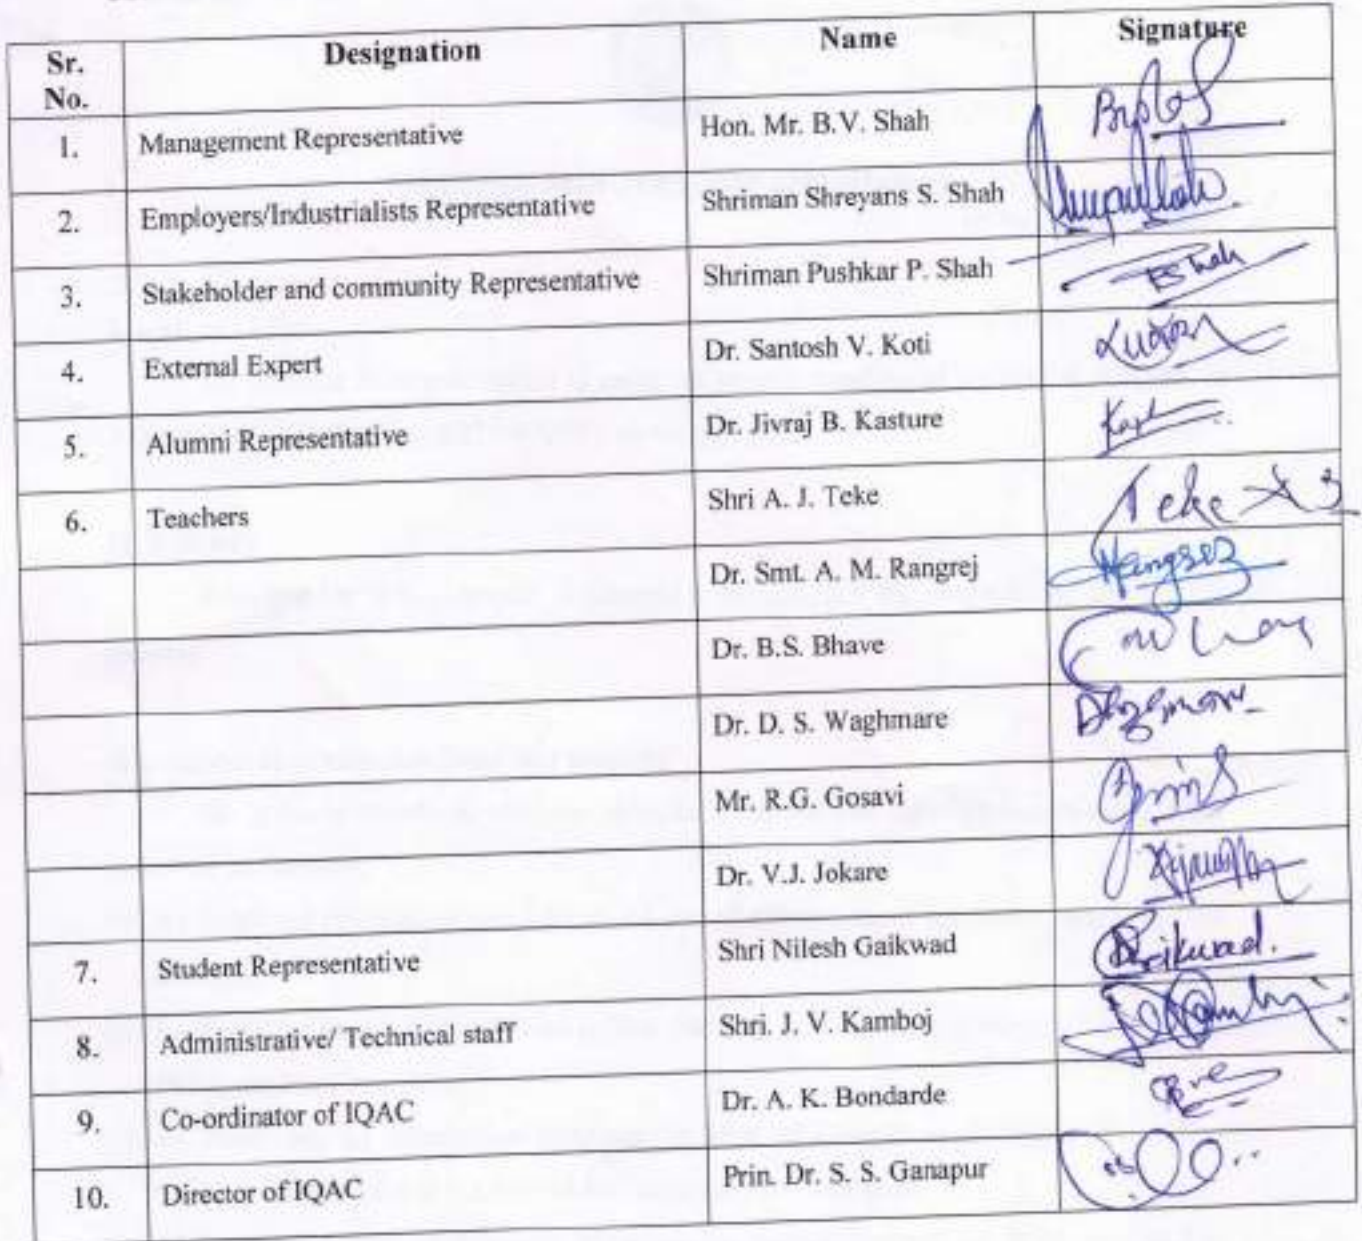 Sr. No. Designation Name Signature
1. Management Representative Hon. Mr. B.V. Shah
2. Employers/Industrialists Representative Shriman Shreyans S. Shah
3. Stakeholder and community Representative Shriman Pushkar P. Shah
4. External Expert Dr. Santosh V. Koti
5. Alumni Representative Dr. Jivraj B. Kasture
6. Teachers Shri A. J. Teke Teke
Dr. Smt. A. M. Rangrej
Dr. B.S. Bhave
Dr. D. S. Waghmare
Mr. R.G. Gosavi
Dr. V.J. Jokare
7. Student Representative Shri Nilesh Gaikwad
8. Administrative/ Technical staff Shri. J. V. Kamboj
9. Co-ordinator of IQAC Dr. A. K. Bondarde
10. Director of IQAC Prin. Dr. S. S. Ganapur